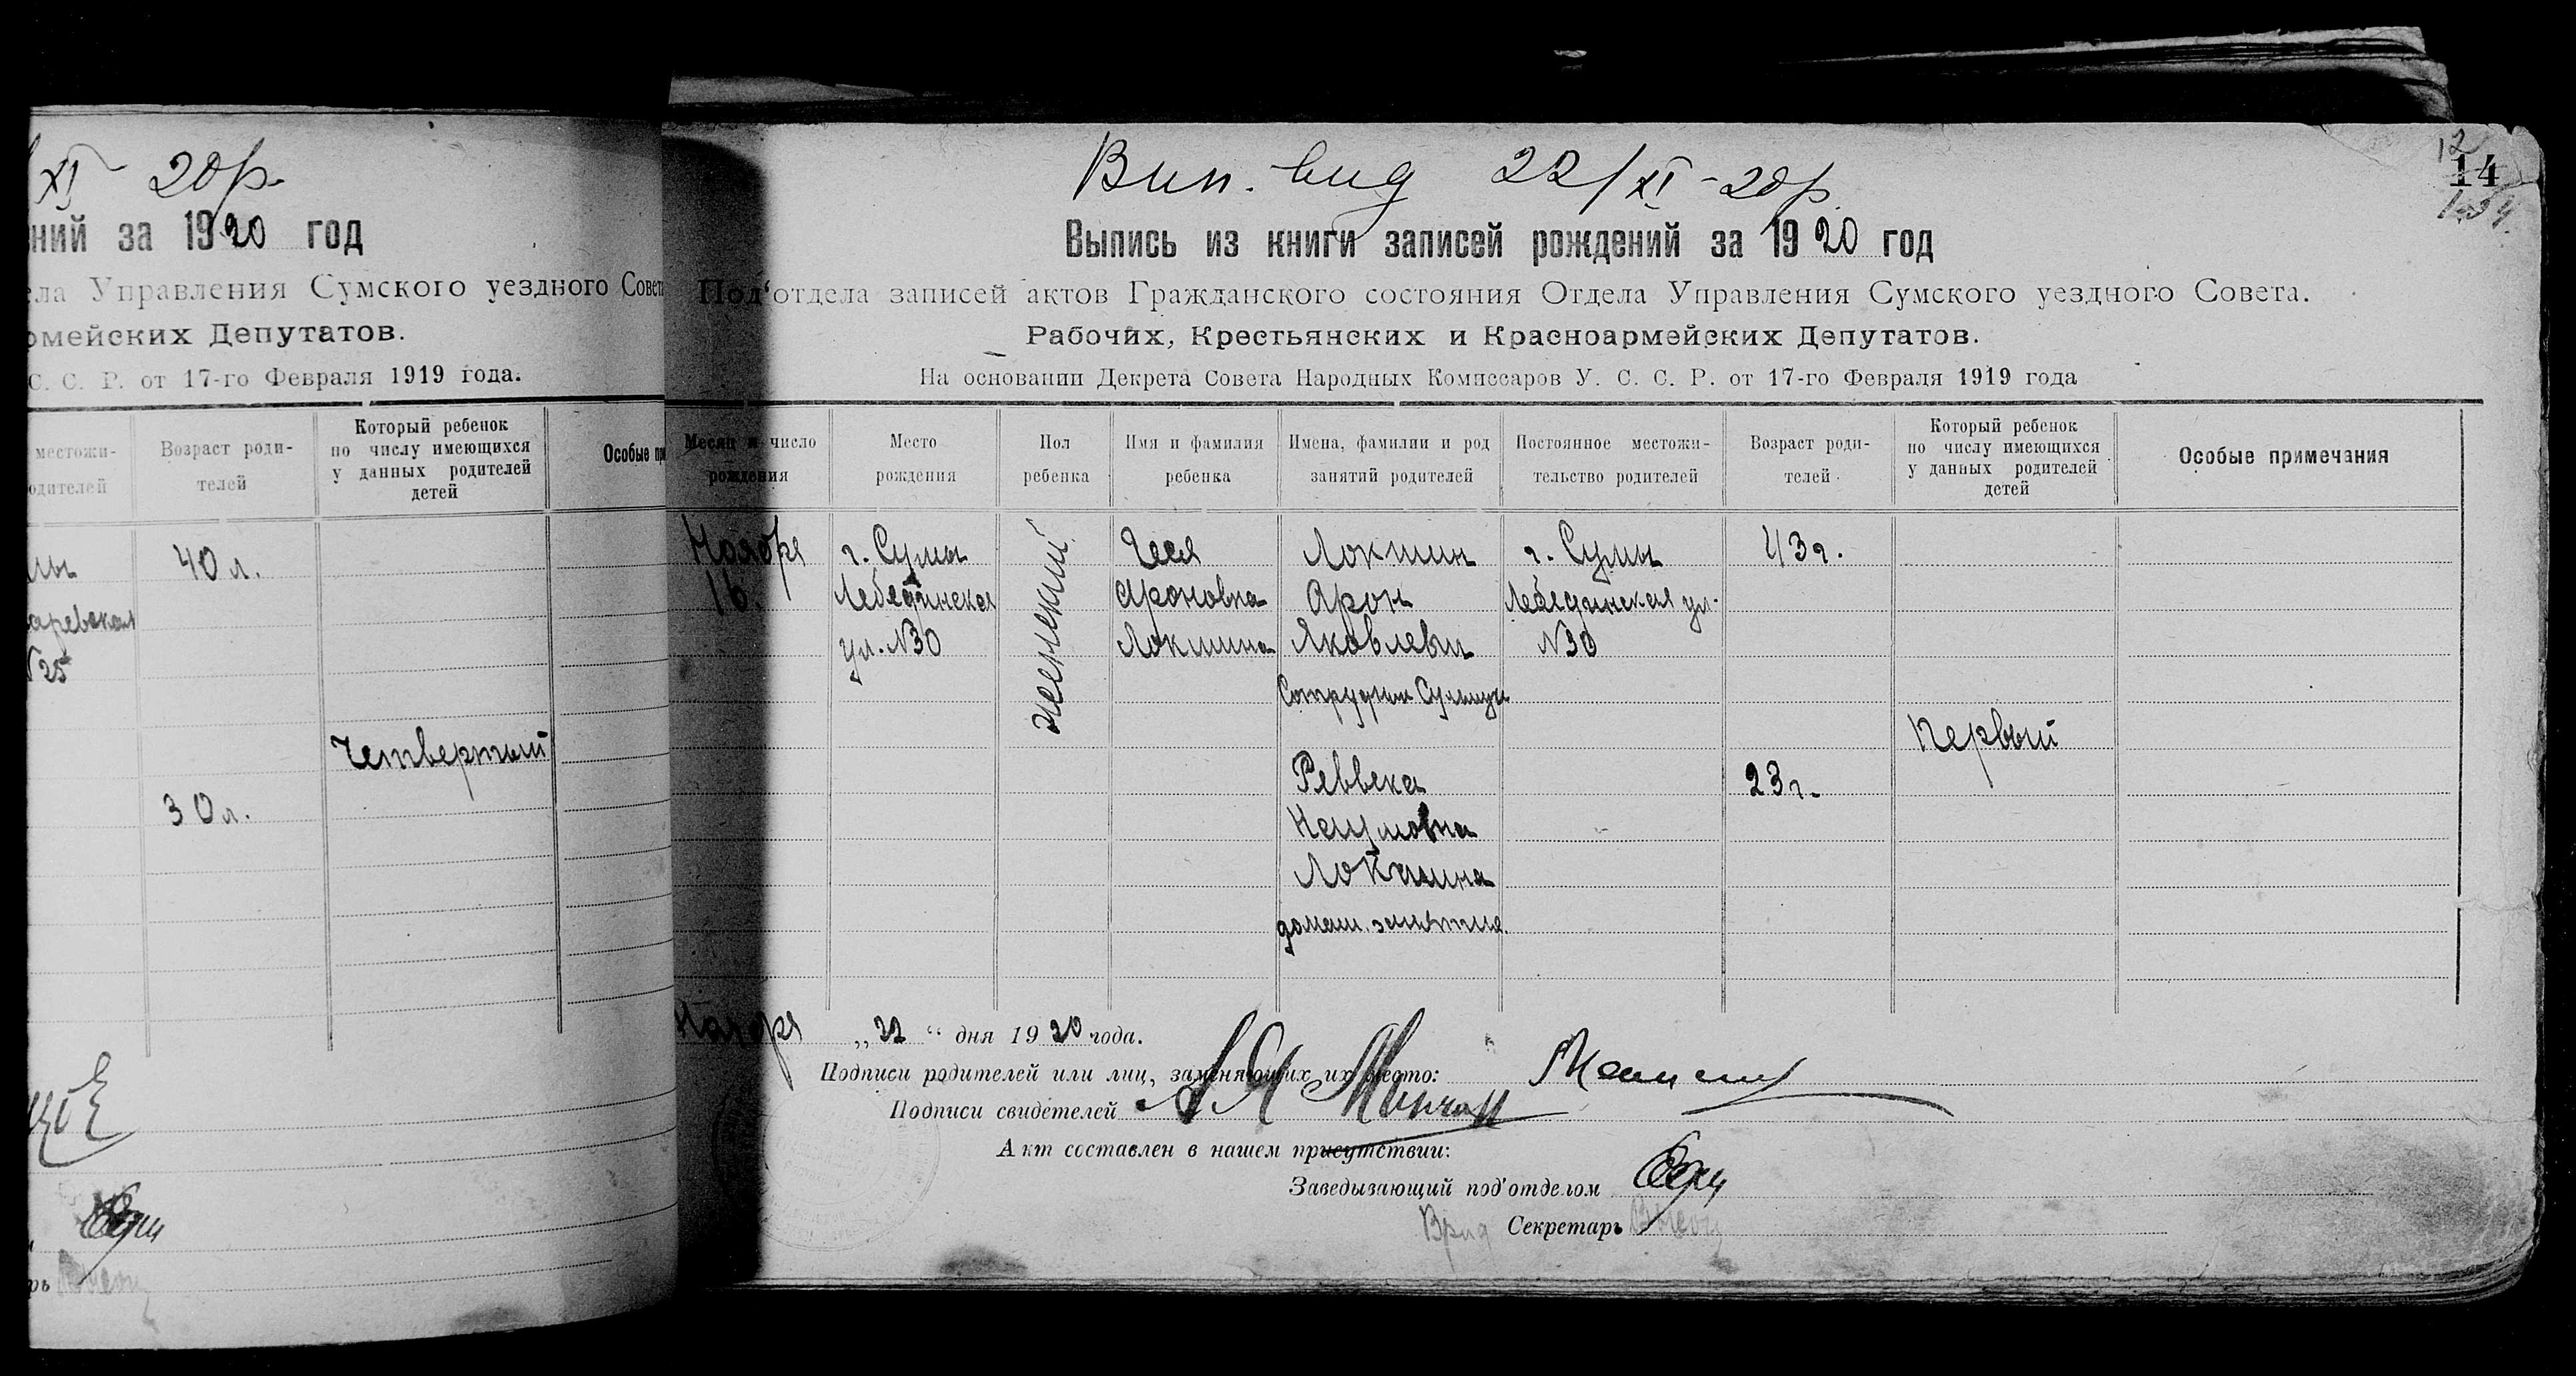 XI 20р.
ний за 1920 год
ела Управления Сумского уездного Совета
омейских Депутатов.
С. С. Р. от 17-го Февраля 1919 года.
местожи-
одителей
Возраст роди-
телей
Который ребенок
по числу имеющихся
у данных родителей
детей
Особые при
40 л.
аревская
N25
Четвертый
30 л.
Вип. вид 22/XI-20р.
12
14
Выпись из книги записей рождений за 1920 год
Под'отдела записей актов Гражданского состояния Отдела Управления Сумского уездного Совета.
Рабочих, Крестьянских и Красноармейских Депутатов.
На основании Декрета Совета Народных Комиссаров У. С. С. Р. от 17-го Февраля 1919 года
Месяц и число
рождения
Место
рождения
Пол
ребенка
Имя и фамилия
ребенка
Имена, фамилии и род
занятий родителей
Постоянное местожи-
тельство родителей
Возраст роди-
телей
Который ребенок
по числу имеющихся
у данных родителей
детей
Особые примечания
Ноября
16.
г. Сумы
Лебединская
ул. N30
женский
Ароновна
Локшина
Локшин
Арон
Яковлевич
Сотрудник
Реввека
Наумовна
Локшина
домаш. занятие
г. Сумы
Лебединская ул.
N30
43г.
23г.
Первый
Ноября „22“ дня 1920 года.
Подписи родителей или лиц, заменяющих их место:
Подписи свидетелей
Акт составлен в нашем присутствии:
Заведывающий под'отделом
Врид Секретарь